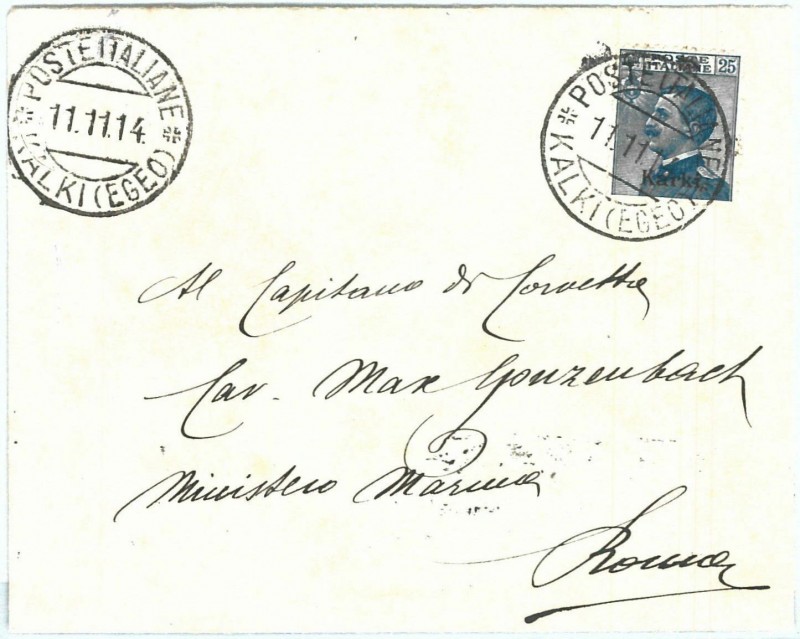 POSTE ITALIANE
11.11.14
KALKI (EGEO)
POSTE
ITALIANE 25
Karki
POSTE ITALIANE
11.11.1
KALKI (EGEO)
Al Capitano di Corvetta
Cav. Max Gonzenbach
Ministero Marina
Roma